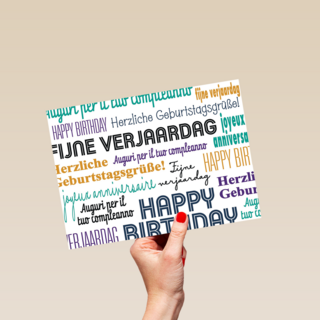 auguri per il tuo compleanno
fijne verjaardag
HAPPY BIRTHDAY Herzliche Geburtstagsgrüße!
FIJNE VERJAARDAG joyeux
anniversa
Herzliche Auguri per il tuo compleanno HAPPY BIRT
Geburtstagsgrüße! Fijne verjaardag
joyeux anniversaire Herzli
Geburt
Auguri per il
tuo compleanno HAPPY
BIRTHDAY
VERJAARDAG
Augu
tuo co